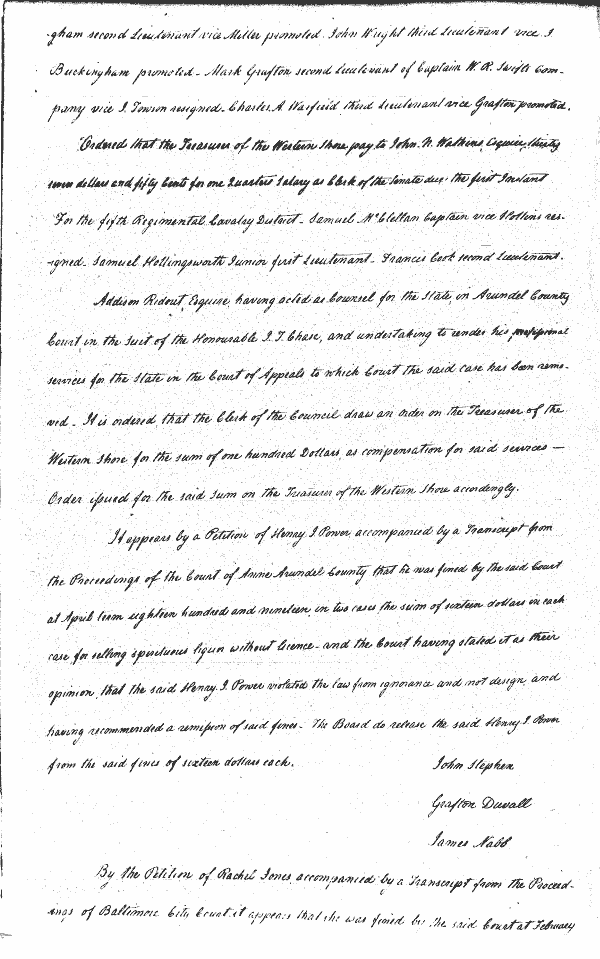 -gham second Lieutenant vice Miller promoted. John Wright third Lieutenant vice I.
Buckingham promoted - Mark Grafton second Lieutenant of Captain W. R. Swifts Com-
pany vice I. Towson resigned - Charles A. Warfield third Lieutenant vice Grafton promoted.
Ordered that the Treasurer of the Western Shore pay to John N. Watkins, Esquire, thirty
seven dollars and fifty Cents for one Quarters Salary as Clerk of the Senate due the first Instant
For the fifth Regimental Cavalry District - Samuel McClellan Captain vice Hollins res-
-igned - Samuel Hollingsworth Junior first Lieutenant - Francis Cook second Lieutenant.
Addison Ridout, Esquire, having acted as Counsel for the State, in Arundel County
Court, in the suit of the Honourable I. T. Chase, and undertaking to render his professional
services for the State in the Court of Appeals to which Court the said case has been remo-
ved - It is ordered that the Clerk of the Council draw an order on the Treasurer of the
Western Shore for the sum of one hundred Dollars, as compensation for said services -
Order issued for the said sum on the Treasurer of the Western Shore accordingly.
It appears by a Petition of Henry I. Power accompanied by a Transcript from
the Proceedings of the Court of Anne Arundel County that he was fined by the said Court
at April term eighteen hundred and nineteen, in two cases the sum of sixteen dollars in each
case for selling spirituous liquor without licence - and the Court having stated it as their
opinion, that the said Henry I. Power violated the law from ignorance and not design, and
having recommended a remission of said fines - The Board do release the said Henry I. Power
from the said fines of sixteen dollars each.
John Stephen
Grafton Duvall
James Nabb
By the Petition of Rachel Jones accompanied by a Transcript from the Proceed-
ings of Baltimore City Court it appears that she was fined by the said Court at February